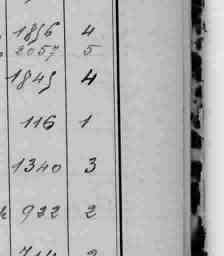 1896 4
2057 5
1849 4
116 1
1340 3
922 2